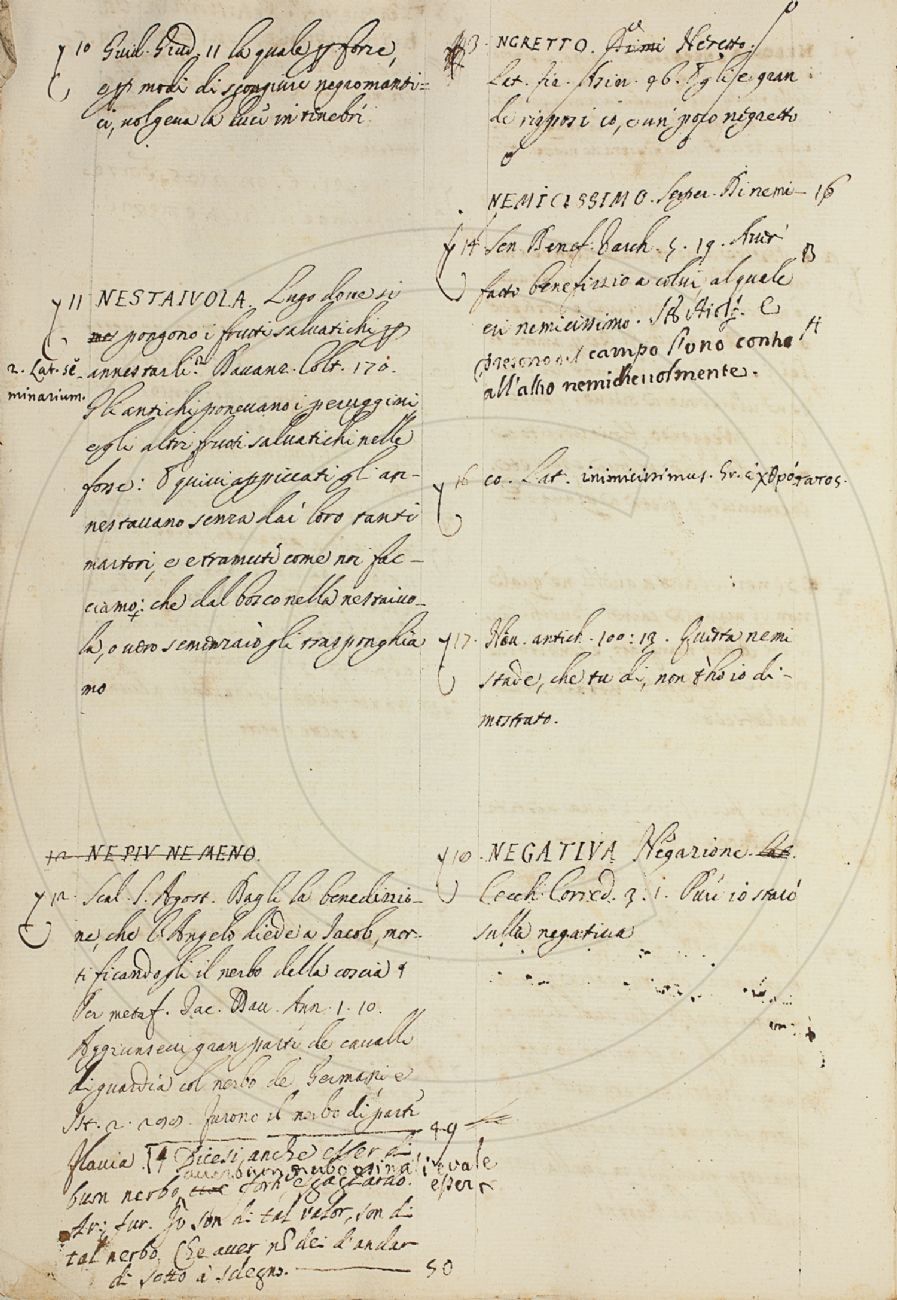 10 Guid. Giud. 11 la quale p forze,
e p modi di scongiuri negromanti-
ci, volgeva la luce in tinebri
11 NESTAIVOLA. Luogo dove si
pongono i frutti salvatichi p
annestarli. Davanz. Colt. 170.
2. Lat. sē-
minarium.
Gli antichi ponevano i peruggini
e gli altri frutti salvatichi nelle
fosse: E quivi appiccati gl' an-
nestavano senza dar loro tanti
martori, e tramute come noi fac-
ciamo: che dal bosco nella nestaivo-
la, o vero semenzaio gli trasponghia
mo
12 NE PIV NE MENO.
12 Scal. S. Agost. Dagli la benedizio-
ne, che l'Angelo diede a Jacob, mor-
tificandogli il nerbo della coscia
Per metaf. Tac. Dav. Ann. 1. 10.
Aggiunsevi gran parte de cavalli
di guardia col nerbo de Germani e
Ist. 2. furono il nerbo di parte
49
Flavia. Dicesi anche esser di
buon nerbo, forte e gagliardo.
Ar. fur. Io son di tal valor, son di
tal nerbo, Che aver nō dei d'andar
di sotto à sdegno. 50
13 NGRETTO. Neretto.
Let. fac. 96. Egli e gran
de risposi io, e un poco negretto
NEMICISSIMO. Superl. Di nemi- 16
14 Sen. Benef. Varch. 5. 19. Aver B
fatto benefizzio a colui, al quale
eri nemicissimo.
presono il campo l'uno contro A
all'altro nemichevolmente.
16 co. Lat. inimicissimus. Gr. ἐχθρότατος.
17. Nov. antich. 100: 13. Questa nemi
stade, che tu di, non t'ho io di-
mostrato.
10 NEGATIVA Negazione. Lat.
Cecch. Corred. 3. 1. Pure io starò
sulla negativa